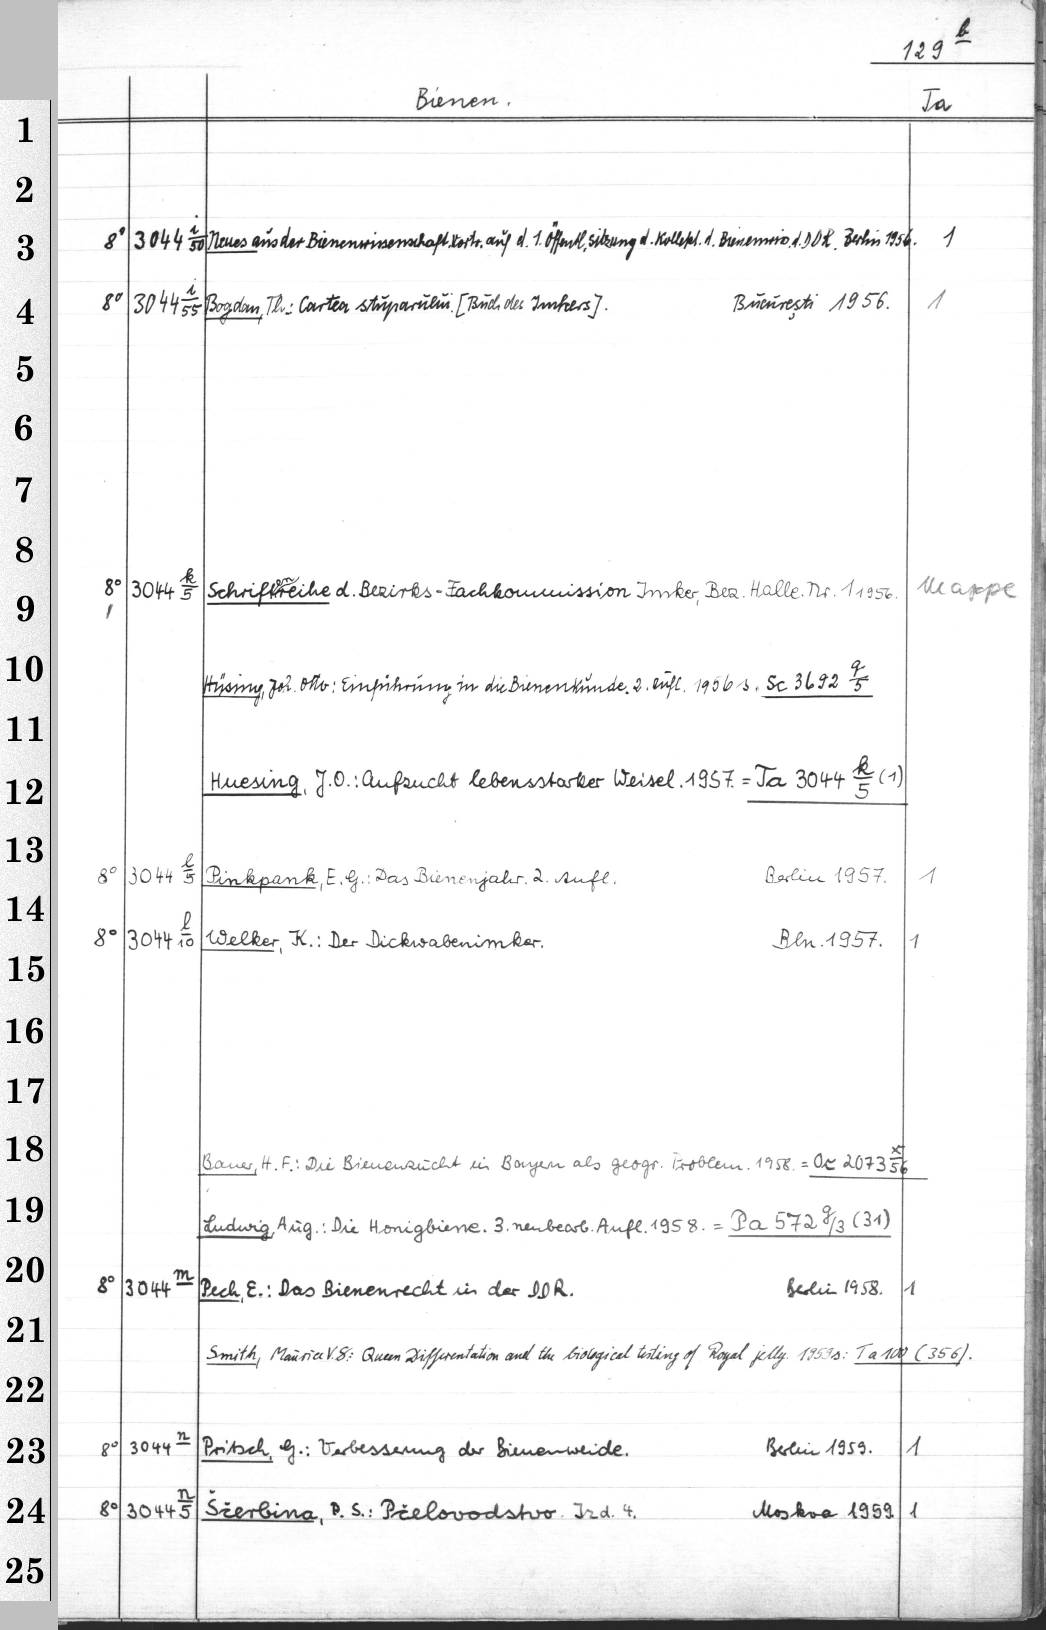 129 b
Bienen. Ta
1
2
3 8° 3044 i/50 Neues aus der Bienenwissenschaft. Vortr. auf d. 1. Öffentl. Sitzung d. d. Berlin 1956. 1
4 8° 3044 i/55 Bogdan, Th.: Cartea stuparului. [Buch des Imkers]. București 1956. 1
5
6
7
8
9 8° 3044 k/5 Schriftenreihe d. Bezirks-Fachkommission Imker, Bez. Halle. Nr. 1 1956. Mappe
10
Hüsing, Joh. Otto: Einführung in die Bienenkunde. 2. Aufl. 1956 s. Sc 3692 q/5
11
12 Huesing, J.O.: Aufzucht lebensstarker Weisel. 1957. = Ta 3044 k/5 (1)
13
8° 3044 l/5 Pinkpank, E.G.: Das Bienenjahr. 2. Aufl. Berlin 1957. 1
14
8° 3044 l/10 Welker, K.: Der Dickwabenimker. Bln. 1957. 1
15
16
17
18 Bauer, H.F.: Die Bienenzucht in Bayern als geogr. Problem. 1958. = Oc 2073 x/56
19 Ludwig, Aug.: Die Honigbiene. 3. neubearb. Aufl. 1958. = Pa 572 g/3 (31)
20 8° 3044 m Pech, E.: Das Bienenrecht in der DDR. Berlin 1958. 1
21
Smith, Maurice V. S.: Queen Differentation and the biological testing of Royal jelly. 1959 s: Ta 100 (356).
22
23 8° 3044 n Pritsch, G.: Verbesserung der Bienenweide. Berlin 1959. 1
24 8° 3044 n/5 Ščerbina, P. S.: Pčelovodstvo. Izd. 4. Moskva 1959 1
25